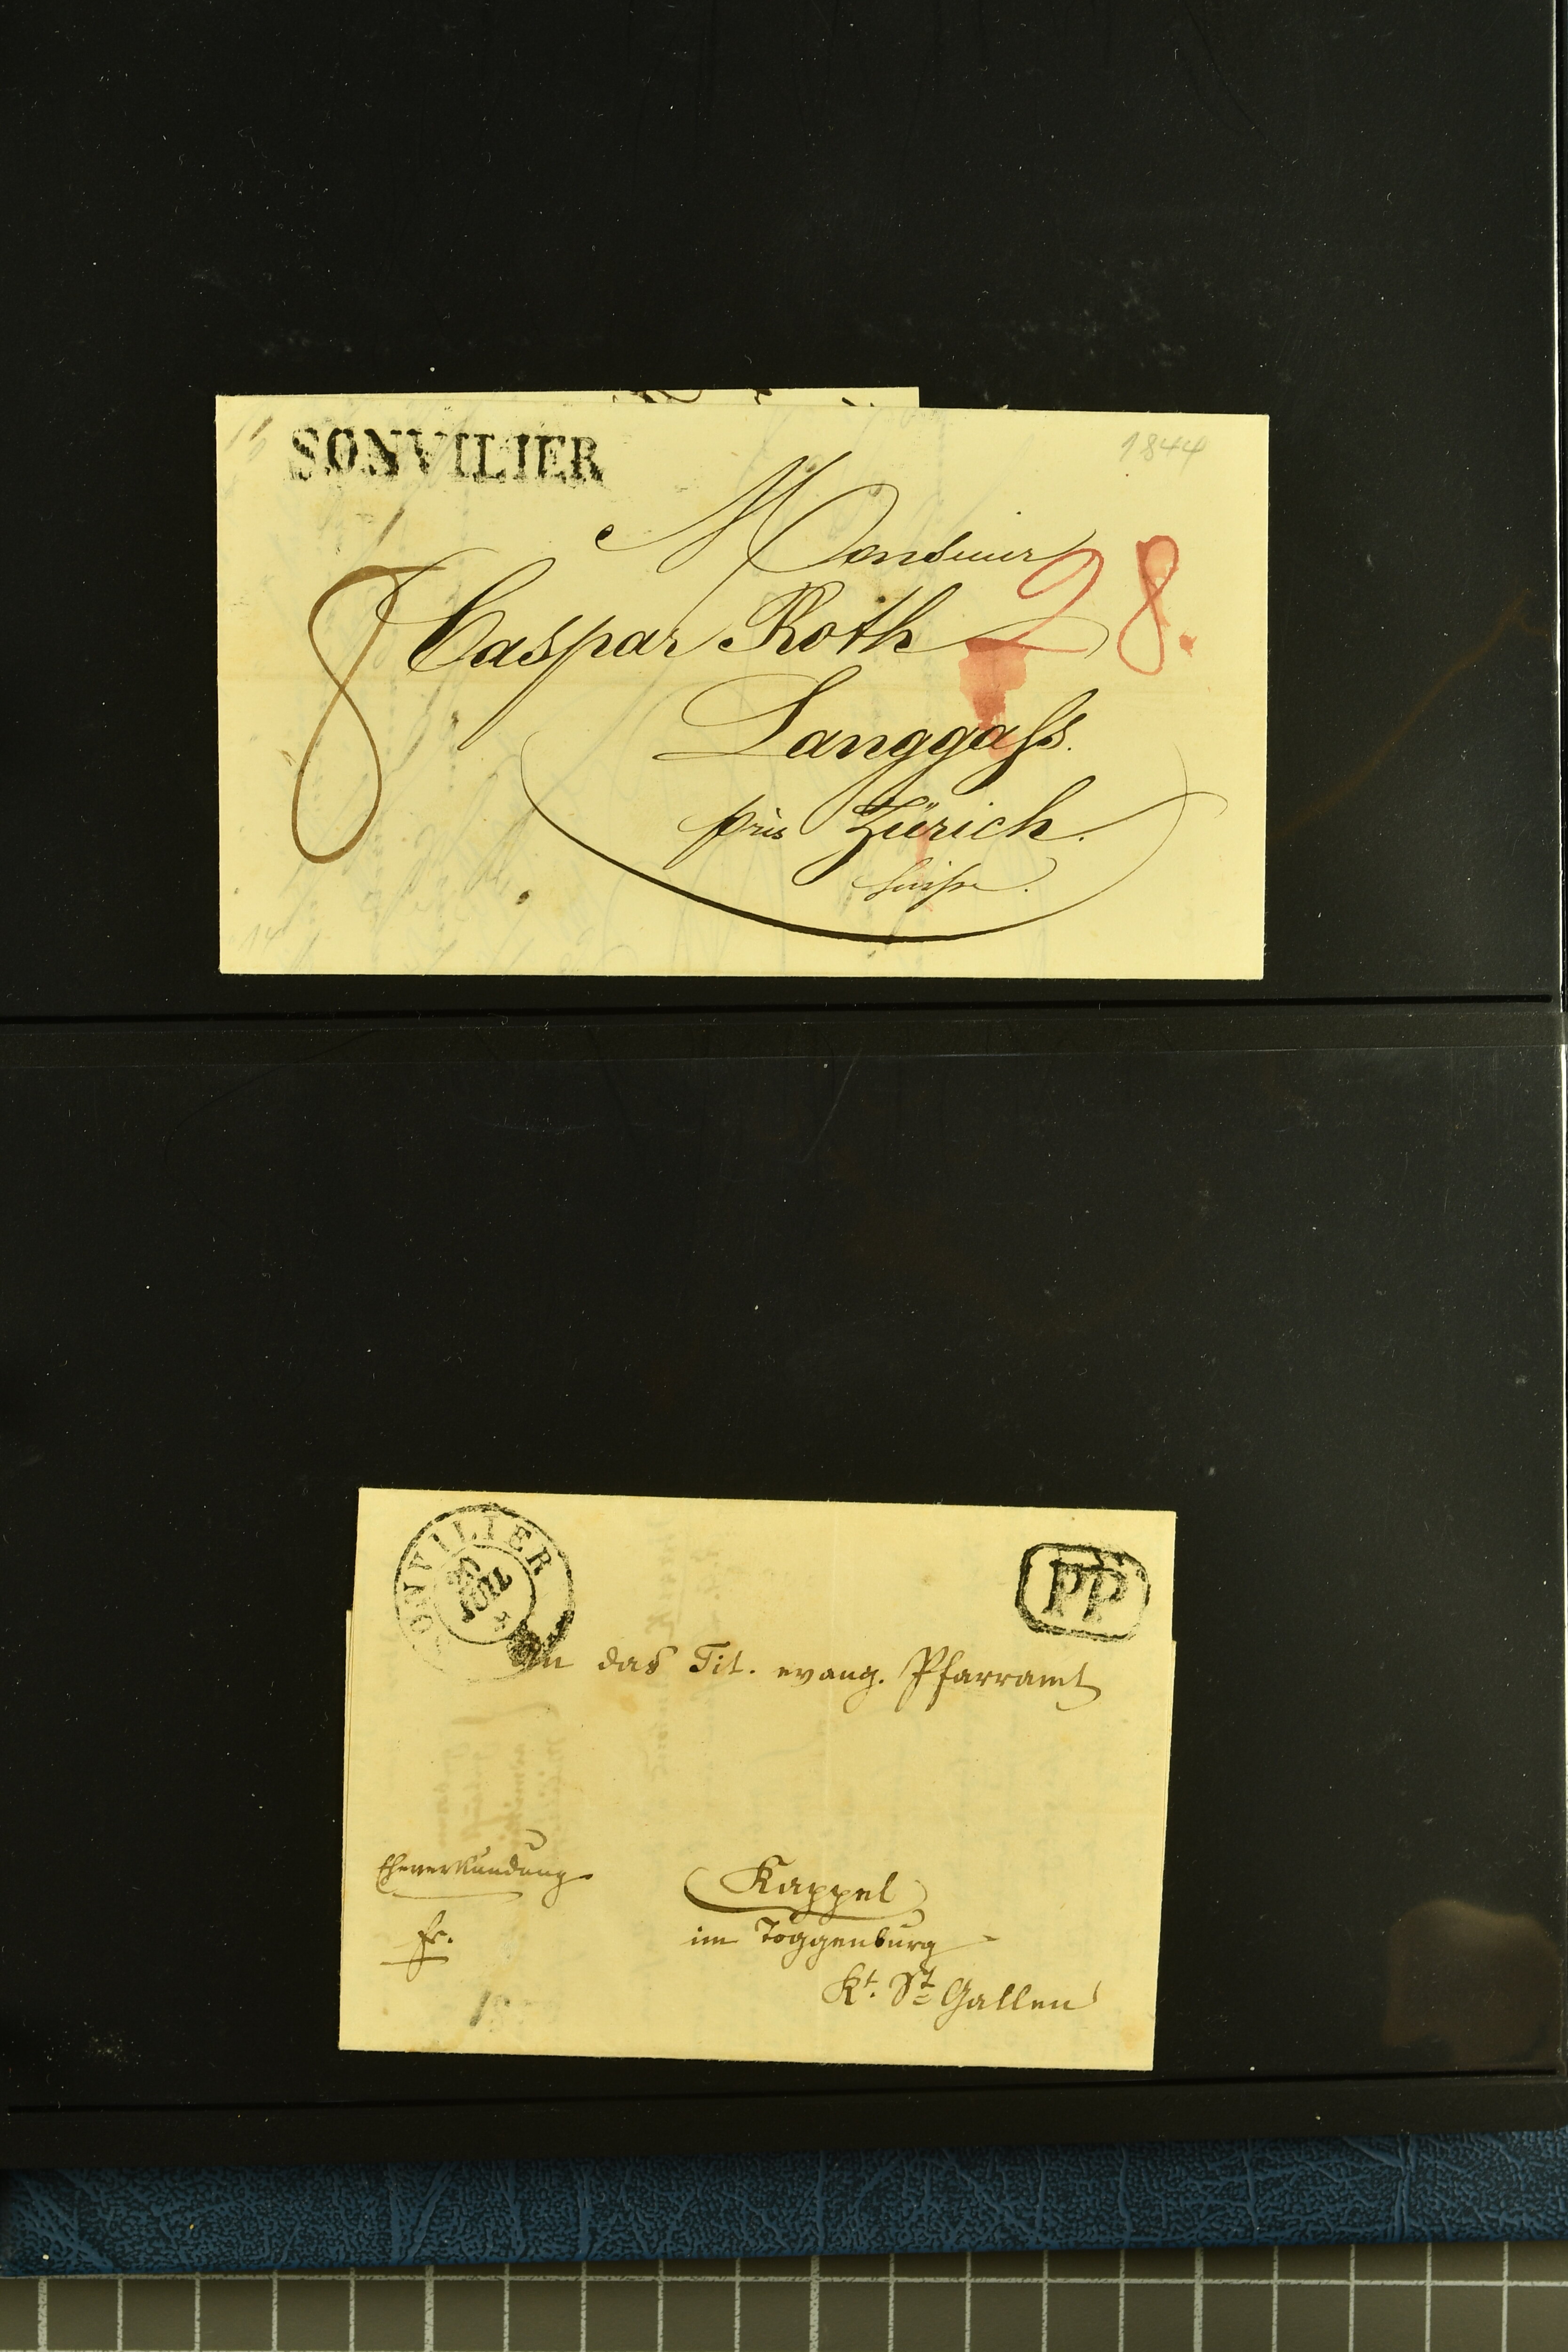 SONVILIER
1844
Monsieur
8 Caspar Roth 28.
Langgass.
près Zürich.
Suisse.
SONVILIER
JUIL
PP
An das Tit. evang. Pfarramt
Eheverkündung
Kappel
fr.
im Toggenburg
Kt. St. Gallen